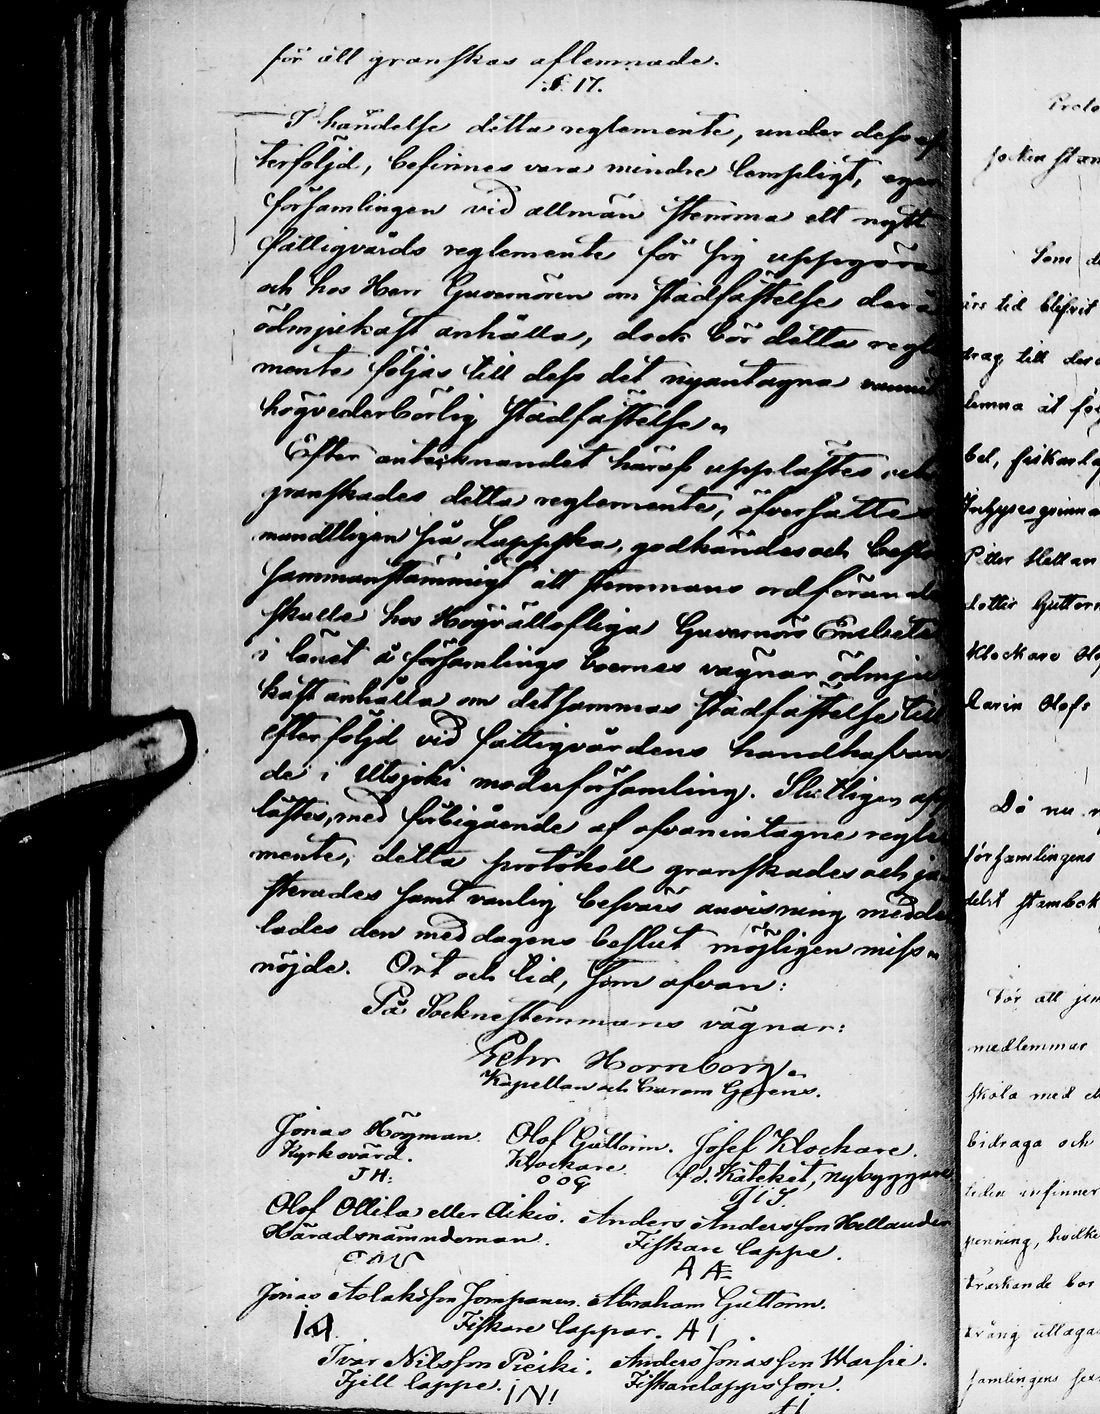 för att granskas aflemnade.
§. 17.
I händelse detta reglemente, under dess ef
terföljd, befinnes vara mindre lempligt, eger
församlingen vid allmän stemma ett nytt
fattigvårds reglemente för sig uppgöra
och hos Herr Guvernören om stadfästelse derå
ödmjukast anhålla, dock bör detta regle
mente följas till dess det nyantagna vunnit
högvederbörlig stadfästelse„
Efter antecknandet häraf upplästes och
granskades detta reglemente, öfversattes
mundtligen på Lappska, godkändes och beslöts
sammanstämmigt att stemmans ordförande
skulle hos Högvällofliga Guvernörs Embetet
i länet å församlings boernes vägnar ödmju
kast anhålla om detsammas stadfästelse till
efterföljd vid fattigvårdens handhafvan
de i Utsjoki moderförsamling. Slutligen upp
lästes, med förbigående af ofvanintagne regle
mente, detta protokoll granskades och ju
sterades samt vanlig besvärs anvisning medde
lades den med dagens beslut möjligen miss„
nöjde. Ort och tid, som ofvan:
På Sockenstemmans vägnar:
Petr Hornborg.
Kapellan och Curam Gerens.
Jonas Högman. Olof Guttorm. Josef Klockare.
Kyrkovärd. Klockare. f.d. Kateket, nybyggare
J H: O O G J i J.
Olof Ollila eller Aikio. Anders Andersson Hellander
Häradsnämndeman. Fiskare lappe.
A A
Jonas Aslaksson Jompanen. Abraham Guttorm.
I A. Fiskare lappar. A I.
Ivar Nilsson Pieski. Anders Jonasson Warsie.
Fjell lappe. I N I Fiskarelappsson.
Som
års tid blifvit
drag till des
lemna åt
bel, fiskarla
Inhysesqvinna
Petter
dotter Guttorm
Klockare
Karin Olofs
Då nu
församlingens
För att
medlemmar
skola med
bidraga och
penning,